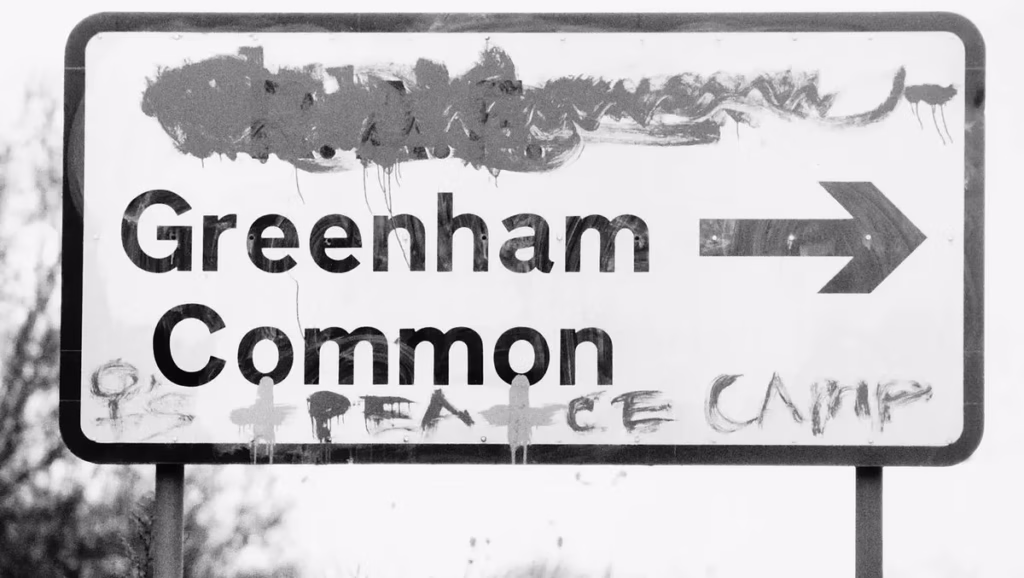 Greenham
Common
♀'s PEACE CAMP